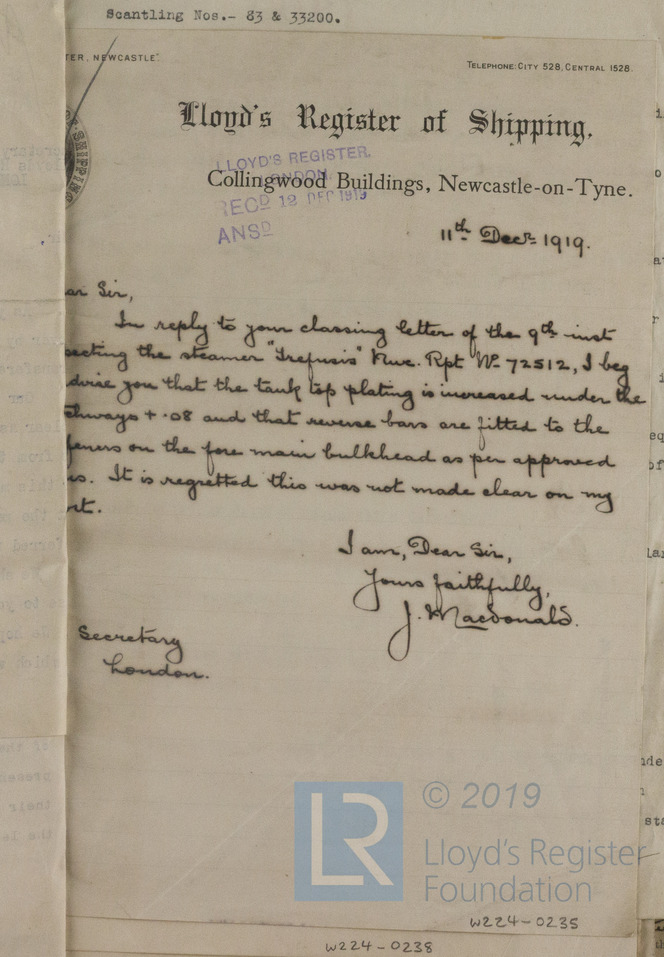 Scantling Nos.- 83 & 33200.
TER, NEWCASTLE".
TELEPHONE: CITY 528, CENTRAL 1528.
SHIPPING
Lloyd's Register of Shipping.
LLOYD'S REGISTER.
LONDON.
Collingwood Buildings, Newcastle-on-Tyne.
RECD 12 DEC 1919
ANSD
11th Decr 1919.
ar Sir,
In reply to your classing letter of the 9th inst
pecting the steamer "Trefusis" Nwc. Rpt No 72512, I beg
dvise you that the tank top plating is increased under the
chways + .08 and that reverse bars are fitted to the
feners on the fore main bulkhead as per approved
ns. It is regretted this was not made clear on my
ort.
I am, Dear Sir,
Yours faithfully,
J. Macdonald.
Secretary
London.
LR
© 2019
Lloyd's Register
Foundation
W224-0235
W224-0238